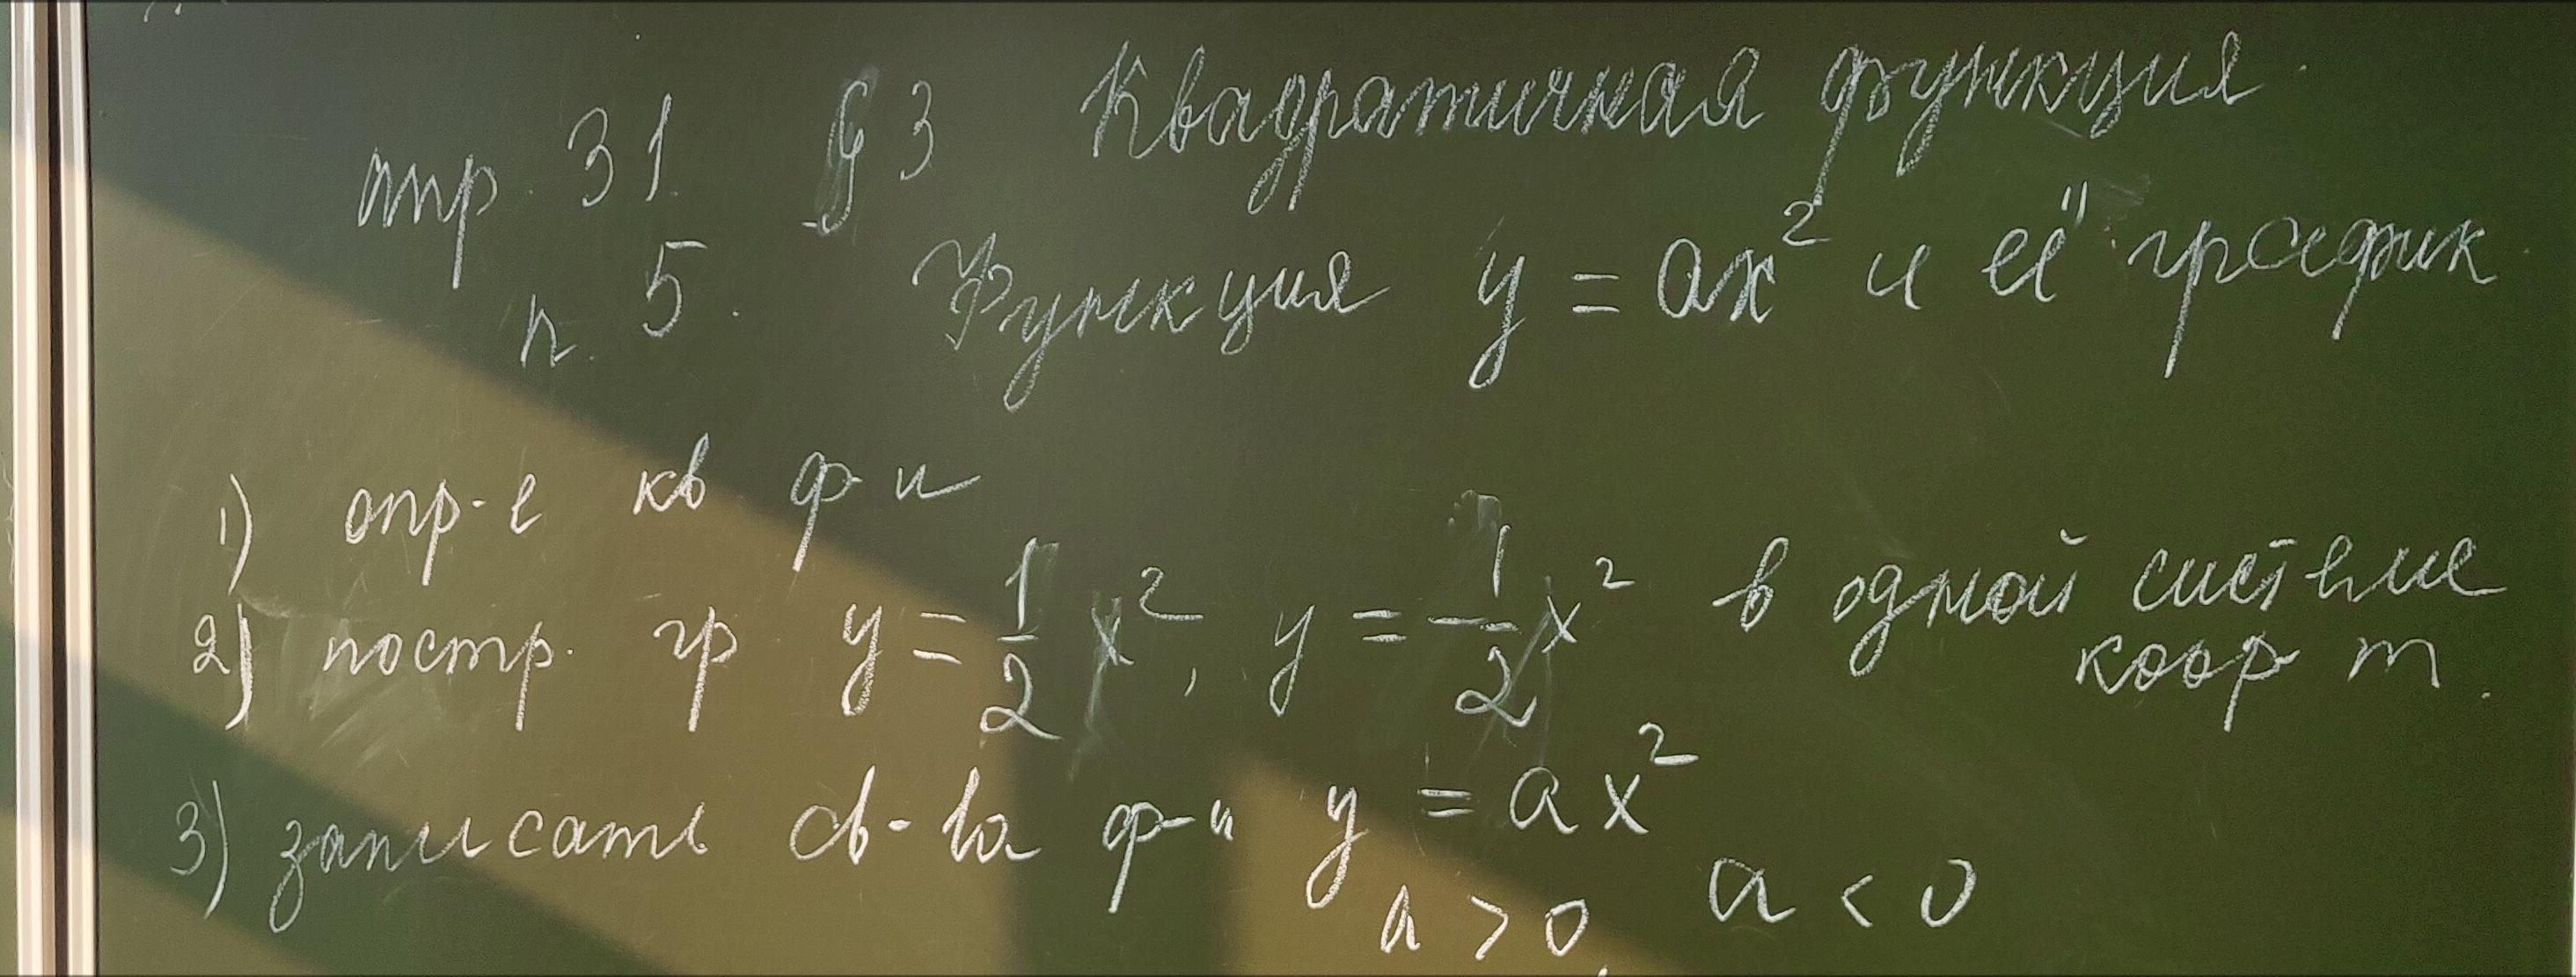 стр. 31. § 3 Квадратичная функция.
п. 5. Функция y = ax² и её график.
1) опр-е кв ф-и
2) постр. гр y = 1/2 x², y = -1/2 x² в одной системе
коорт.
3) записать св-ва ф-и y = ax²
a > 0, a < 0